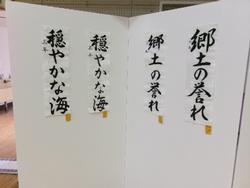 郷土の誉れ
郷土の誉れ
穏やかな海
穏やかな海